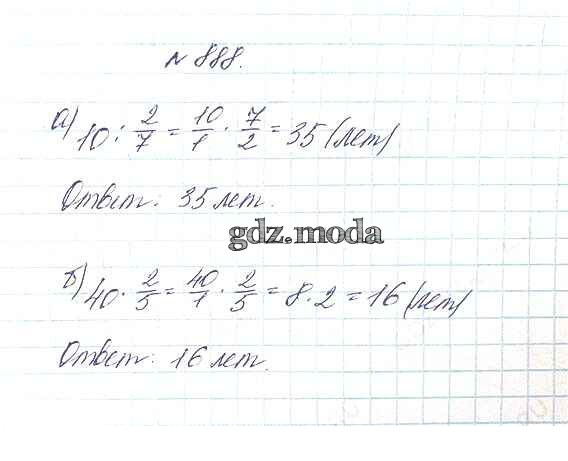 № 888.
а) 10 : 2/7 = 10/1 · 7/2 = 35 (лет)
Ответ: 35 лет.
gdz.moda
б) 40 · 2/5 = 40/1 · 2/5 = 8 · 2 = 16 (лет)
Ответ: 16 лет.